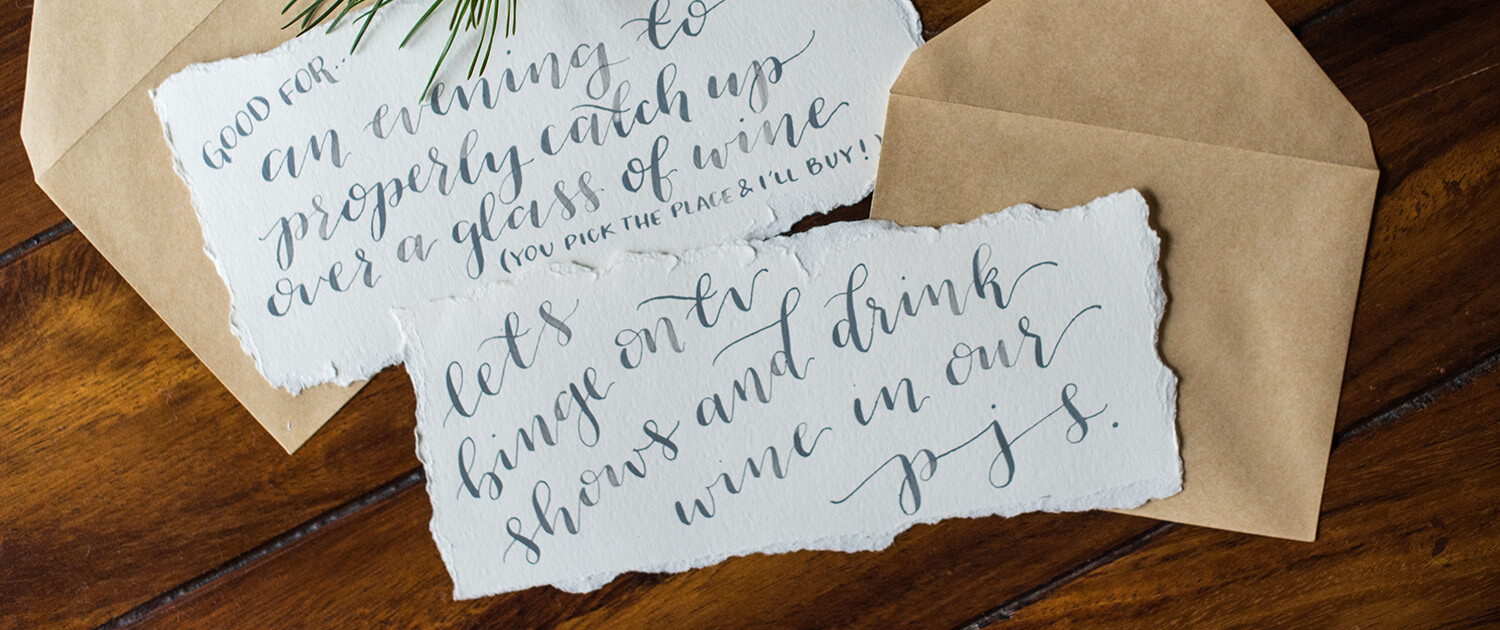 GOOD FOR..
an evening to
properly catch up
over a glass of wine
(YOU PICK THE PLACE & I'LL BUY!)
lets
binge on tv
shows and drink
wine in our
pjs.